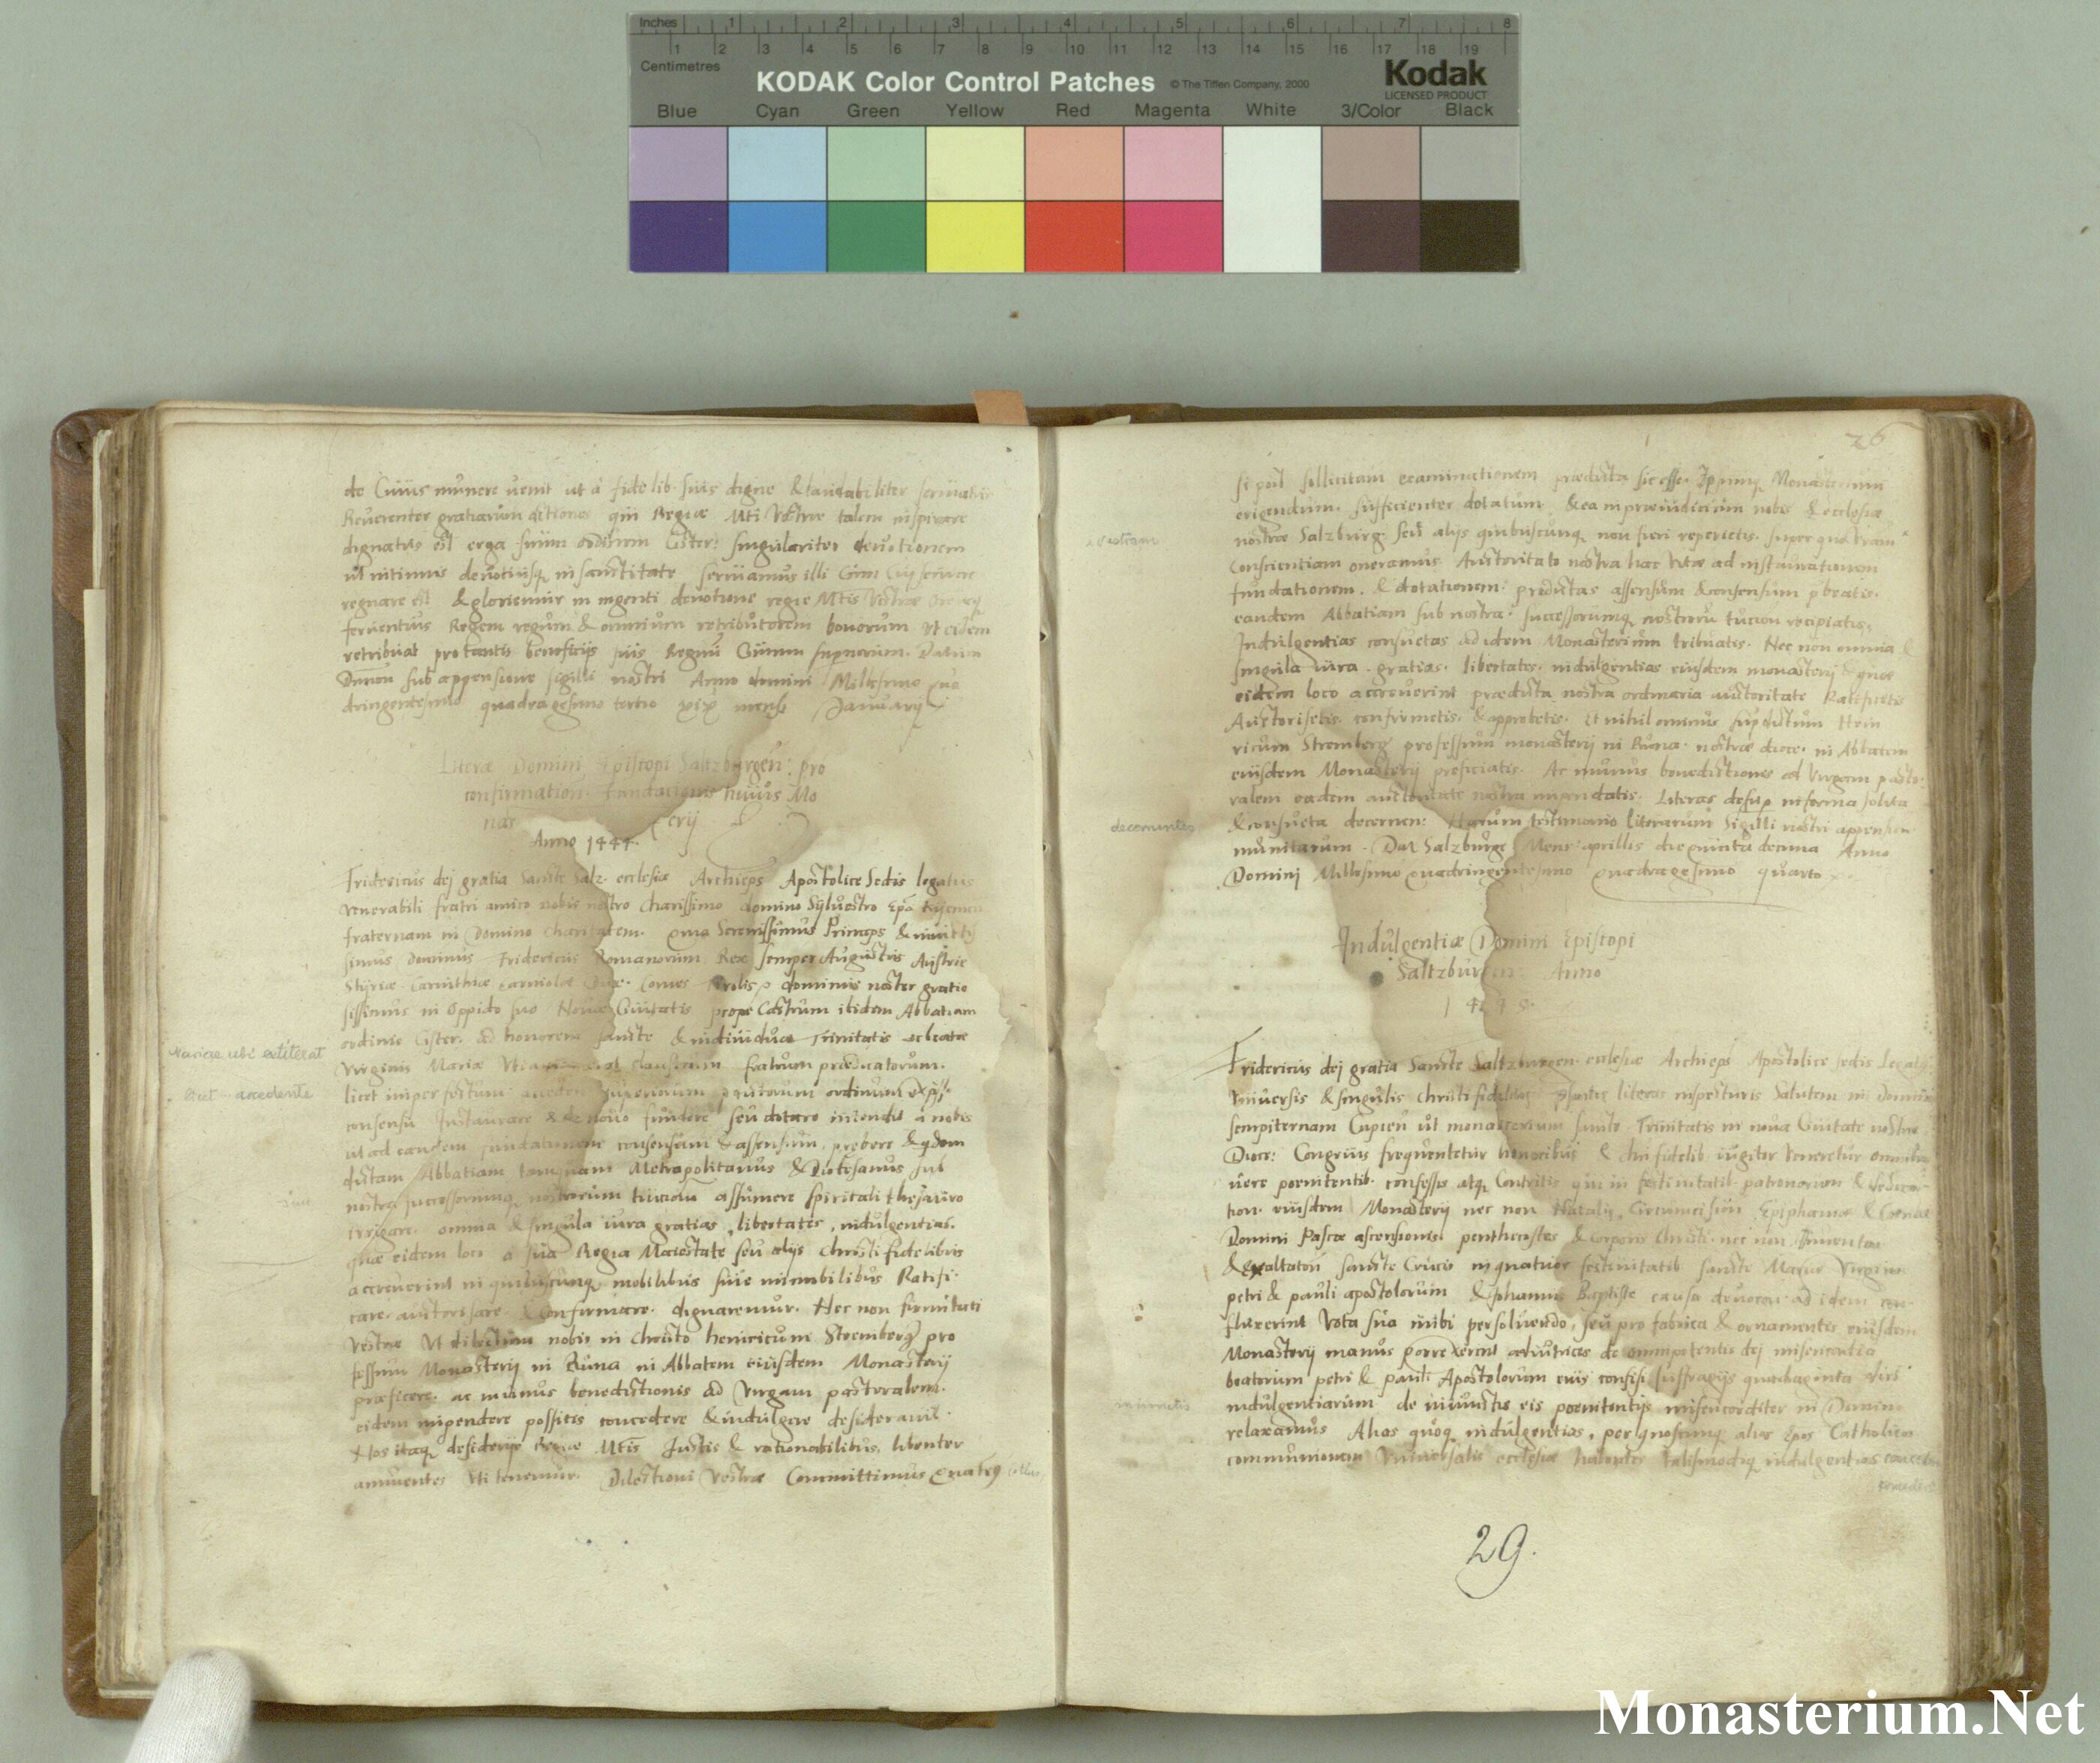 Inches 1 2 3 4 5 6 7 8
1 2 3 4 5 6 7 8 9 10 11 12 13 14 15 16 17 18 19
Centimetres
KODAK Color Control Patches © The Tiffen Company, 2000
Kodak
LICENSED PRODUCT
Blue Cyan Green Yellow Red Magenta White 3/Color Black
de Cuius munere venit ut à fidelib. suis digne & laudabiliter
Reverenter gratiarum actiones qui Regiae Mti Vestrae talem inspirare
dignatus est erga suum ordinem Cister: singulariter devotionem
ut intimius devotiusq in sanctitate serviamus illi
regnare est & gloriemur in ingenti devotione regie Mtis
ferventius Regem regum & omnium retributorem bonorum ut eidem
retribuat pro tantis beneficijs suis Regnum supernorum. Datum
sub appensione sigilli nostri Anno domini Millesimo qua
dringentesimo quadragesimo tertio xix mensis Januarij
Literae Domini Episcopi Saltzburgen: pro
confirmation: fundationis huius Mo
nas terij
Anno 1444.
Fridericus dej gratia Sancte Salz. ecclesiae Archieps Apostolice Sedis legatus
venerabili fratri amico nobis nostro charissimo domino Sylvestro Epo
fraternam in Domino charitatem. Serenissimus Princeps &
simus dominus Fridericus Romanorum Rex semper Augustus Austrie
Styriae Carinthiae Carniolae Dux. Comes Tirolis dominus noster gratio
sissimus in Oppido suo Novae Civitatis prope Castrum ibidem Abbatiam
ordinis Cister. ad honorem sancte & individuae Trinitatis ac beatae
Mariae ubi extiterat
virginis Mariae claustrum fratrum praedicatorum.
licet accedente
licet imperfectum ordinum
consensu Instaurare & de novo fundare seu dotare intendit à nobis
ut ad eandem fundationem consensum & assensum prebere &
dictam Abbatiam tamquam Metropolitanus & Diocesanus sub
nostra successorumq nostrorum assumere spiritali thesauro
irrigare. omnia & singula iura gratias, libertates, indulgentias.
quae eidem loco à sua Regia Maiestate seu alijs Christi fidelibus
accreverint in quibuscunq mobilibus sive immobilibus Ratifi-
care. auctorisare & Confirmare. dignaremur. Nec non
Vestrae ut dilectum nobis in Christo henricum Stremberg pro
fessum Monasterij in Runa in Abbatem eiusdem Monasterij
praeficere. ac munus benedictionis ad Virgam pastoralem.
eidem impendere possitis concedere & indulgere desideravit.
Nos itaq desiderijs Regiae Mtis Justis & rationabilibus libenter
annuentes uti tenemur. Dilectioni Vestrae Committimus
26
si post sollicitam examinationem praedicta sic esse. Monasterium
erigendum. sufficienter dotatum & ea in praeiudicium nobis & ecclesiae
nostrae Salzburg: seu alijs quibuscunq non fieri reperietis. super quo
vestram
conscientiam oneramus Auctoritate nostra hac vice ad instaurationem
fundationem. & dotationem. predictas assensum & consensum
eandem Abbatiam sub nostra successorumq nostroru recipiatis.
Indulgentias consuetas ad idem Monasterium tribuatis. Nec non omnia &
singula iura. gratias. libertates. indulgentias eiusdem monasterij & quae
eidem loco accreverint praedicta nostra ordinaria auctoritate Ratificetis
Auctorisetis. confirmetis. & approbetis. Et nihilominus Hein
ricum Stremberg professum monasterij in Runa. nostrae dioce. in Abbatem
eiusdem Monasterij preficiatis. Ac munus benedictionis ad Virgam pasto.
ralem eadem auctoritate nostra impendatis. Literas desup in forma solita
decernentes
& consueta decernen: Harum testimonio literarum Sigilli nostri appension
munitarum. Dat Salzburge Mens: aprillis die quinta decima Anno
Dominj Millesimo quadringentesimo quadragesimo quarto
Indulgentiae Domini Episcopi
Saltzburgen: Anno
Fridericus dej gratia Sancte Saltzburgen. ecclesiae Archieps Apostolice sedis
Universis & singulis Christi fidelibus literas inspecturis Salutem in Domino
sempiternam Cupien ut monasterium sancte Trinitatis in nova Civitate nostrae
Dioce: Congruis frequentetur honoribus & fidelib. iugiter veneretur
vere poenitentib. confessis atq Contritis qui in festivitatib. patronorum &
tion. eiusdem Monasterij nec non Natalis, Circumcision Epiphaniae & Coenae
Domini Pascae ascensionis penthecostes & Corporis Christi. nec non
& exaltation sancte Crucis in quatuor festivitatib sancte Marie Virginis
petri & pauli apostolorum & Johannis Baptiste causa ad idem
fluxerint vota sua inibi persolvendo, seu pro fabrica & ornamentis eiusdem
Monasterij manus porrexerint adiutrices de omnipotentis dej misericordia
beatorum petri & pauli Apostolorum eius confisi suffragijs quadraginta dies
indulgentiarum de iniunctis eis poenitentijs misericorditer in Domino
relaxamus Alias quoq indulgentias, per quoscunq alios Epos Catholicos
communionem Universalis ecclesiae habentes indulgentias
29.
Monasterium.Net